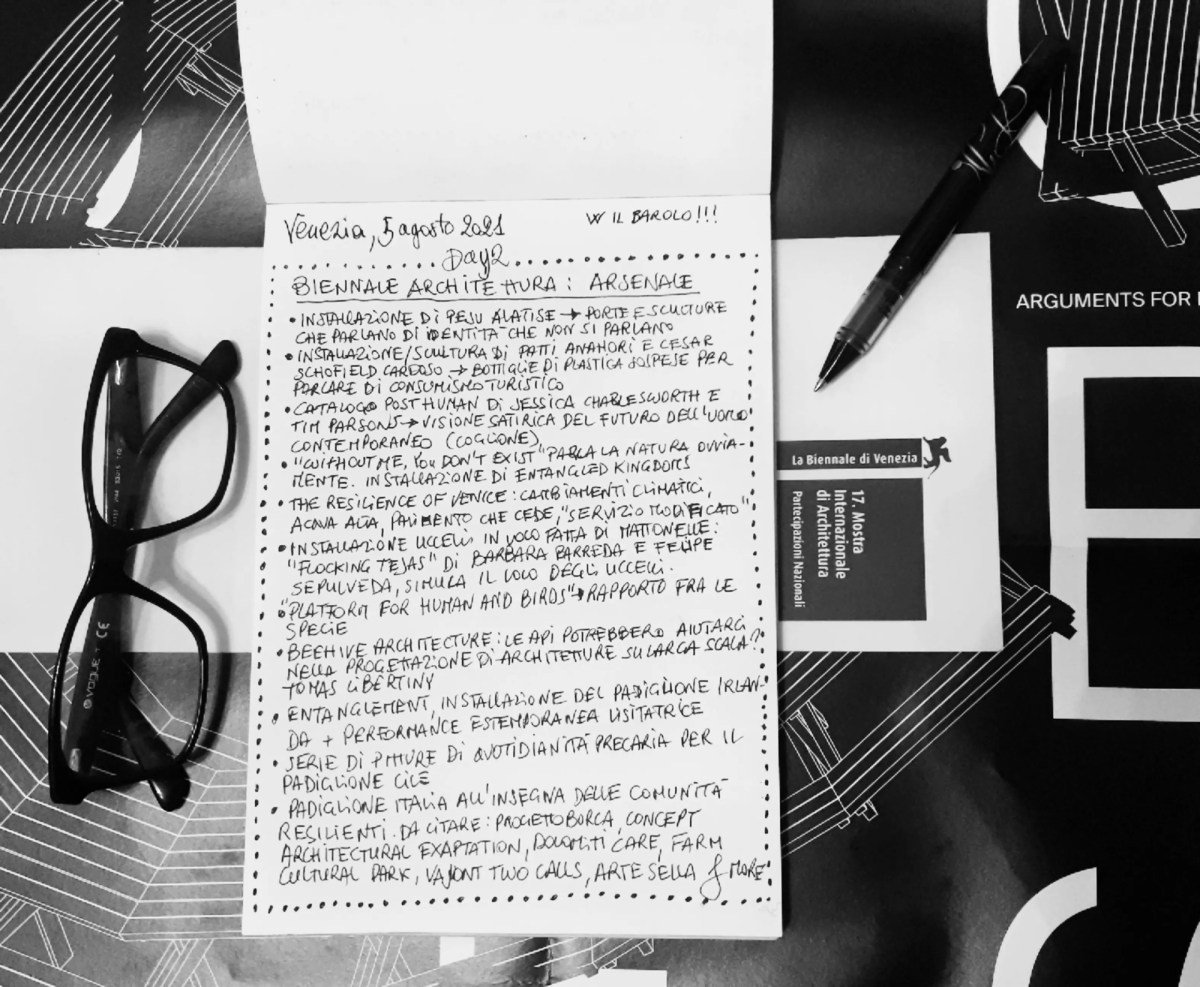 Venezia, 5 agosto 2021
W IL BAROLO!!!
Day 2
BIENNALE ARCHITETTURA: ARSENALE
• INSTALLAZIONE DI PEJU ALATISE → PORTE E SCULTURE
CHE PARLANO DI IDENTITÀ CHE NON SI PARLANO
• INSTALLAZIONE/SCULTURA DI PATTI ANAHORI E CESAR
SCHOFIELD CARDOSO → BOTTIGLIE DI PLASTICA SOSPESE PER
PARLARE DI CONSUMISMO TURISTICO
• CATALOGO POST HUMAN DI JESSICA CHARLESWORTH E
TIM PARSONS → VISIONE SATIRICA DEL FUTURO DELL'UOMO
CONTEMPORANEO (COGLIONE)
• "WITHOUT ME, YOU DON'T EXIST" PARLA LA NATURA OVVIA-
MENTE. INSTALLAZIONE DI ENTANGLED KINGDOMS
• THE RESILIENCE OF VENICE: CAMBIAMENTI CLIMATICI,
ACQUA ALTA, PAVIMENTO CHE CEDE, "SERVIZIO MODIFICATO"
• INSTALLAZIONE UCCELLI IN VOLO FATTA DI MATTONELLE:
"FLOCKING TEJAS" DI BARBARA BARREDA E FELIPE
SEPULVEDA, SIMULA IL VOLO DEGLI UCCELLI.
• "PLATFORM FOR HUMAN AND BIRDS" → RAPPORTO FRA LE
SPECIE
• BEEHIVE ARCHITECTURE: LE API POTREBBERO AIUTARCI
NELLA PROGETTAZIONE DI ARCHITETTURE SU LARGA SCALA?
TOMAS LIBERTINY
• ENTANGLEMENT, INSTALLAZIONE DEL PADIGLIONE IRLAN-
DA + PERFORMANCE ESTEMPORANEA VISITATRICE
• SERIE DI PITTURE DI QUOTIDIANITÀ PRECARIA PER IL
PADIGLIONE CILE
• PADIGLIONE ITALIA ALL'INSEGNA DELLE COMUNITÀ
RESILIENTI. DA CITARE: PROGETTO BORCA, CONCEPT
ARCHITECTURAL EXAPTATION, DOLOMITI CARE, FARM
CULTURAL PARK, VAJONT TWO CALLS, ARTE SELLA & MORE
ARGUMENTS FOR
La Biennale di Venezia
17. Mostra
Internazionale
di Architettura
Partecipazioni Nazionali
vogue CE